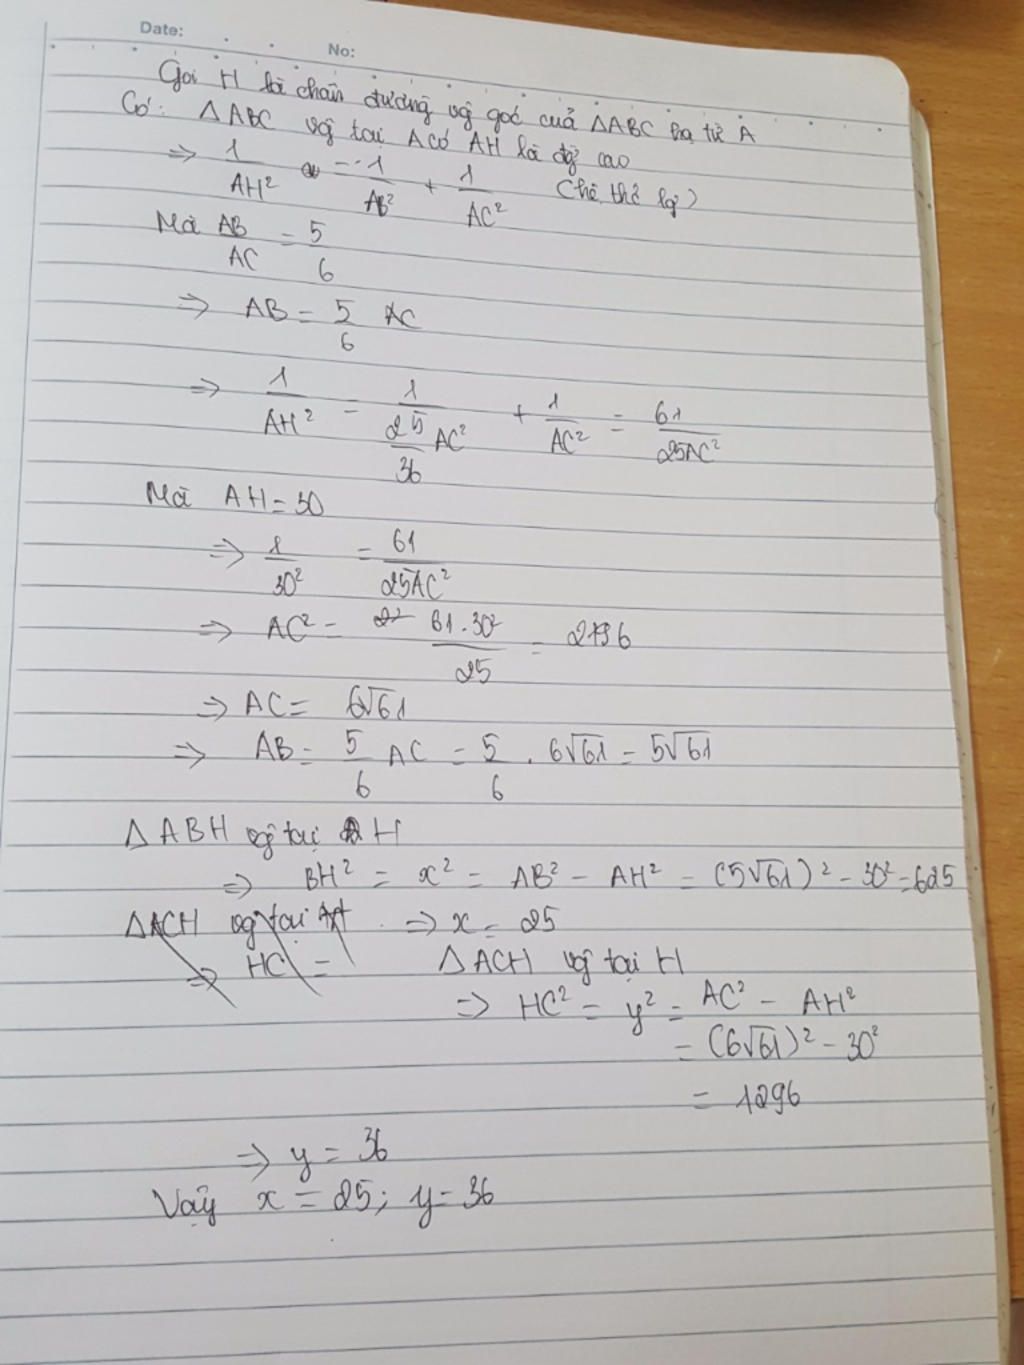 Date:
No:
Gọi H là chân đường vg góc của △ABC hạ từ A
Có: △ABC vg tại A có AH là đg cao
⇒ 1/AH² = 1/AB² + 1/AC² (hệ thức lg)
Mà AB/AC = 5/6
⇒ AB = 5/6 AC
⇒ 1/AH² = 1/(25/36 AC²) + 1/AC² = 61/25AC²
Mà AH = 30
⇒ 1/30² = 61/25AC²
⇒ AC² = 61.30²/25 = 2196
⇒ AC = 6√61
⇒ AB = 5/6 AC = 5/6 . 6√61 = 5√61
△ABH vg tại H
⇒ BH² = x² = AB² - AH² = (5√61)² - 30² = 625
△ACH vg tại ⇒ x = 25
⇒ HC = △ACH vg tại H
⇒ HC² = y² = AC² - AH²
= (6√61)² - 30²
= 1296
⇒ y = 36
Vậy x = 25; y = 36